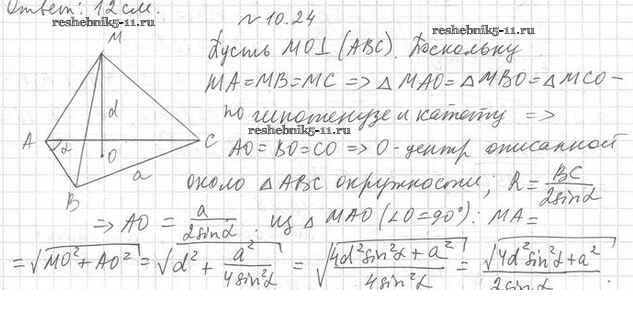 Ответ: 12 см.
reshebnik5-11.ru
№ 10.24
Пусть MO⊥(ABC). Поскольку
MA=MB=MC => △MAO=△MBO=△MCO-
по гипотенузе и катету =>
reshebnik5-11.ru
AO=BO=CO => O-центр описанной
около △ABC окружности; R = BC/2sinα
=> AO = a/2sinα. Из △MAO (∠O=90°): MA=
= √(MO²+AO²) = √(d² + a²/4sin²α) = √((4d²sin²α + a²)/4sin²α) = √(4d²sin²α + a²)/2sinα.
M
d
A
α
O
C
a
B
reshebnik5-11.ru